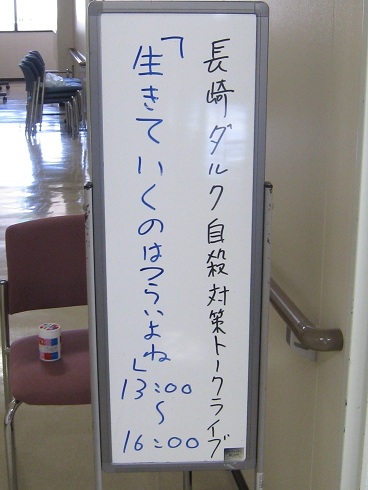 長崎ダルク自殺対策トークライブ
「生きていくのはつらいよね」
13:00
〜
16:00